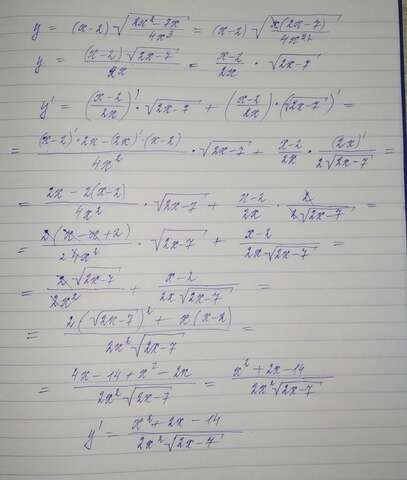 y = (x-2) √((2x² - 7x)/(4x³)) = (x-2) √((x(2x-7))/(4x³))
y = ((x-2) √(2x-7))/(2x) = (x-2)/(2x) · √(2x-7)
y' = ((x-2)/(2x))' · √(2x-7) + ((x-2)/(2x)) · (√(2x-7))' =
= ((x-2)' · 2x - (2x)' · (x-2))/(4x²) · √(2x-7) + (x-2)/(2x) · (2x)'/(2√(2x-7)) =
= (2x - 2(x-2))/(4x²) · √(2x-7) + (x-2)/(2x) · 2/(2√(2x-7)) =
= (2(x-x+2))/(4x²) · √(2x-7) + (x-2)/(2x√(2x-7)) =
= (2·√(2x-7))/(2x²) + (x-2)/(2x√(2x-7)) =
= (2(√(2x-7))² + x(x-2))/(2x²√(2x-7)) =
= (4x - 14 + x² - 2x)/(2x²√(2x-7)) = (x² + 2x - 14)/(2x²√(2x-7))
y' = (x² + 2x - 14)/(2x²√(2x-7))